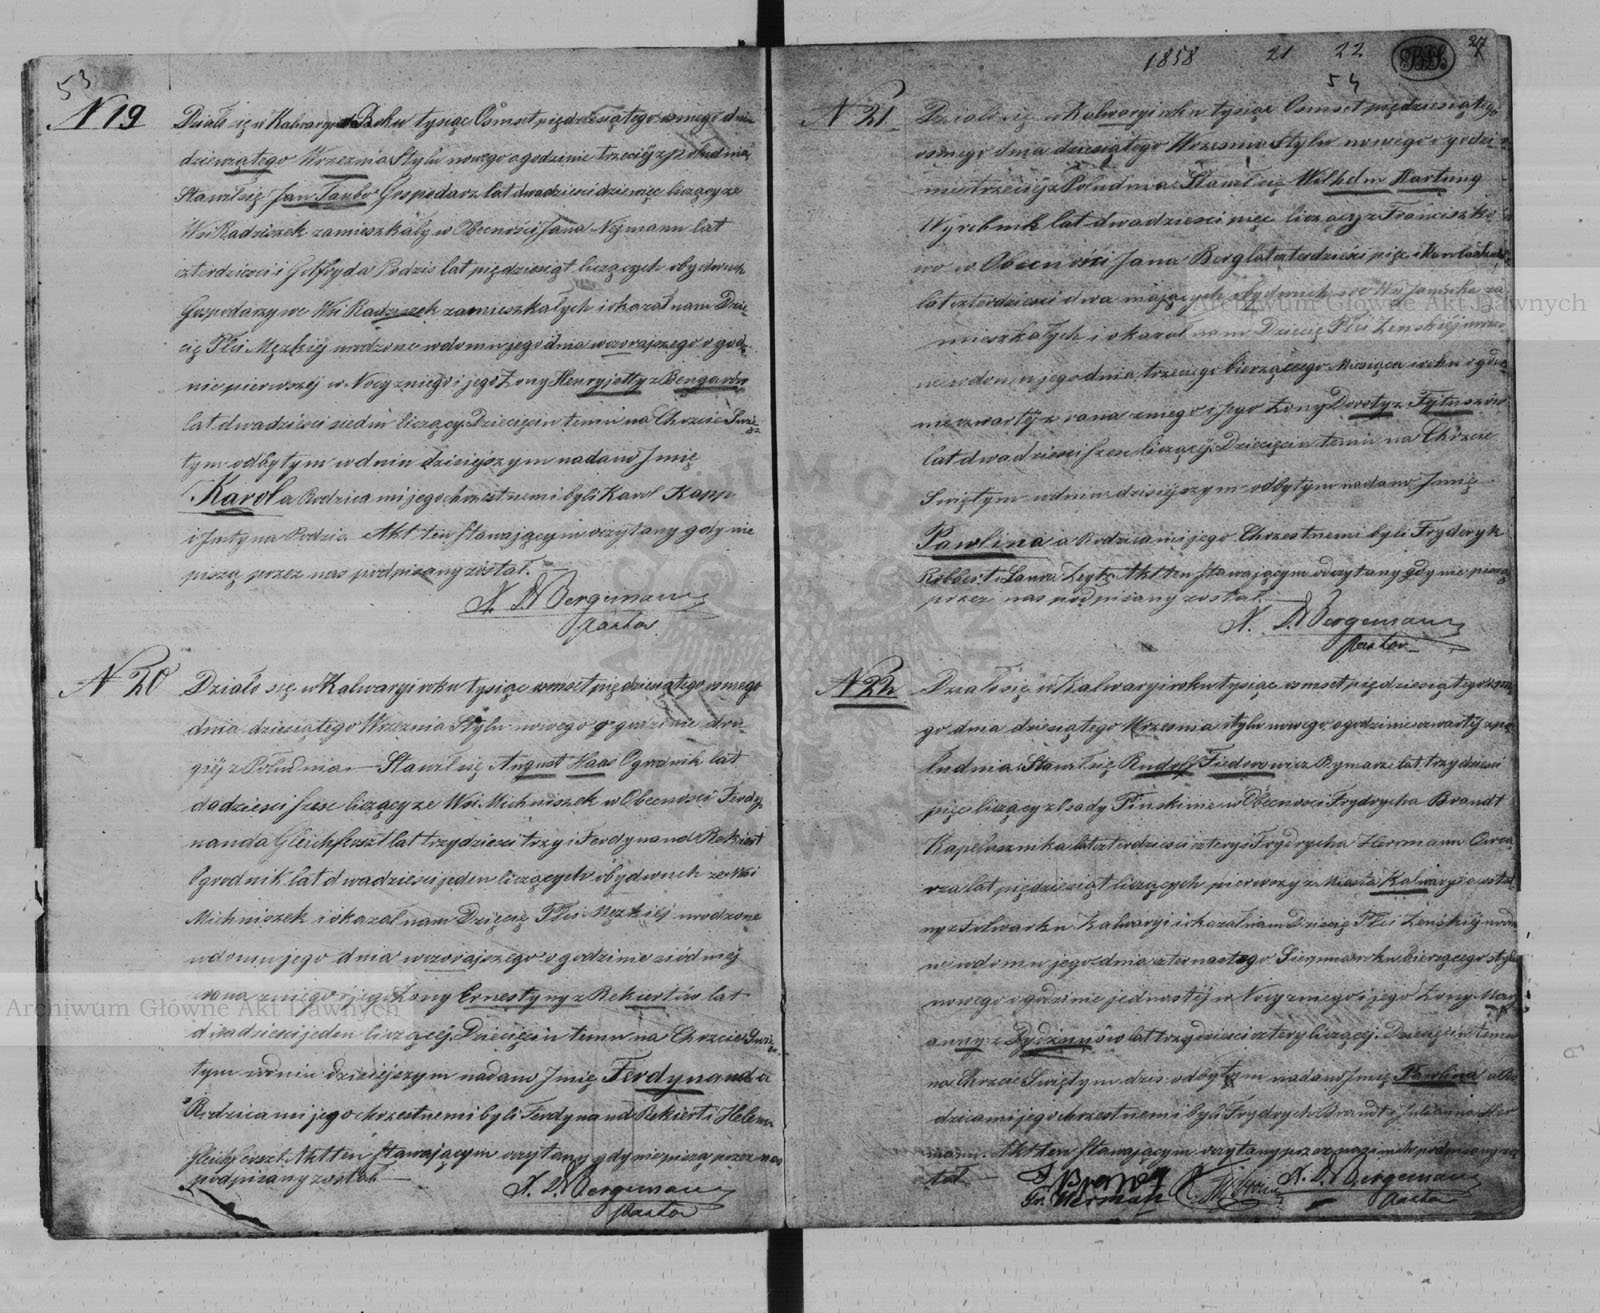 53
N 19
Działo się w Kalwaryi Roku tysiąc Osmset pięćdziesiątego osmego dnia
dziewiątego Wrzesnia Stylu nowego o godzinie trzeciéj z południa
Stawił się Jan Taube Gospodarz lat dwadziescia dziewięc liczący ze
Wsi Radziszek zamieszkały w Obecności Jana Nejmann lat
czterdziesci i Gotfryda Podzis lat pięćdziesiąt liczących obydwuch
Gospodarzy we Wsi Radziszek zamieszkałych i okazał nam Dzie-
cię Płci Męzkiéj urodzone w domu jego dnia wczorajszego o godzi-
nie pierwszéj w Nocy z niego i jego Żony Henryjetty z Bengarów
lat dwadziesci siedm liczący. Dziecięciu temu na Chrzcie Swię-
tym odbytym w dniu dzisiejszym nadano Jmię
Karol a Rodzicami jego chrzestnemi byli Karol Kapp
i Justyna Podzis Akt ten stawającym przeczytany gdy nie
piszą przez nas podpisany został.
X. D. Bergemann
Pastor
N 20
Działo się w Kalwaryi roku tysiąc osmset pięćdziesiątego osmego
dnia dziesiątego Wrzesnia Stylu nowego o godzinie dru-
giéj z Południa Stawił się August Haas Ogrodnik lat
dwadziesci szesc liczący ze Wsi Michniszek w Obecności Ferdy-
nanda Gleichforszt lat trzydziesci trzy i Ferdynand Rekiert
Ogrodnik lat dwadziescia jeden liczących obydwuch ze Wsi
Michniszek i okazał nam Dziecię Płci Męzkiéj urodzone
w domu jego dnia wczorajszego o godzinie siódméj
z rana z niego i jego Żony Ernestyny z Rekiertów lat
dwadziescia jeden liczącéj. Dziecięciu temu na Chrzcie Swię-
tym w dniu dzisiejszym nadano Jmię Ferdynand a
Rodzicami jego chrzestnemi byli Ferdynand Rekiert i Helena
Gleichforszt. Akt ten stawającym przeczytany gdy nie piszą przez nas
podpisany został
X. D. Bergemann
Pastor
1858 21 22 54 27
N 21
Działo się w Kalwaryi roku tysiąc Osmset pięćdziesiątego
osmego dnia dziesiątego Wrzesnia Stylu nowego o godzi-
nie trzeciéj z Południa Stawił się Wilhelm Hartung
Wyrobnik lat dwadziesci pięc liczący z Franciszko-
wa w Obecności Jana Berg lat czterdziesci pięc i Karola
lat czterdziesci dwa mających obydwuch we Wsi Janówka za-
mieszkałych i okazał nam Dziecię Płci Żenskiéj urodzo-
ne w domu jego dnia trzeciego bierzącego Miesiąca i roku o godzi-
nie czwartéj z rana z niego i jego Żony Doroty z Tytusów
lat dwadziesci szesc liczącéj. Dziecięciu temu na Chrzcie
Swiętym w dniu dzisiejszym odbytym nadano Jmię
Pawlina a Rodzicami jego Chrzestnemi byli Frydryk
Robbert i Laura Zeytz Akt ten stawającym przeczytany gdy nie piszą
przez nas podpisany został.
X. D. Bergemann
Pastor
N 22
Działo się w Kalwaryi roku tysiąc osmset pięćdziesiątego osme-
go dnia dziesiątego Wrzesnia stylu nowego o godzinie czwartéj z po-
łudnia Stawił się Rudolf Fiedorowicz Rymarz lat trzydziesci
pięc liczący z Osady w Obecności Frydrycha Brandt
Kapelusznika lat czterdziesci cztery i Frydrycha Herrmann Owcza-
rza lat pięćdziesiąt liczących pierwszy z Miasta Kalwaryi a ostat-
ny z Folwarku Kalwaryi i okazał nam Dziecię Płci Żenskiéj urodzo-
ne w domu jego dnia czternastego Sierpnia roku bierzącego stylu
nowego o godzinie jednastéj w Nocy z niego i jego Żony Mary-
anny z lat trzydziesci cztery liczącéj. Dziecięciu temu
na Chrzcie Swiętym dzis odbytym nadano Jmię Pawlina a Ro-
dzicami jego chrzestnemi byli Frydrych Brandt i Julianna Her-
mann. Akt ten stawającym przeczytany przez nas i nich podpisany zos-
tał
Fr. Herman
X. D. Bergemann
Pastor
Archiwum Główne Akt Dawnych
Archiwum Główne Akt Dawnych